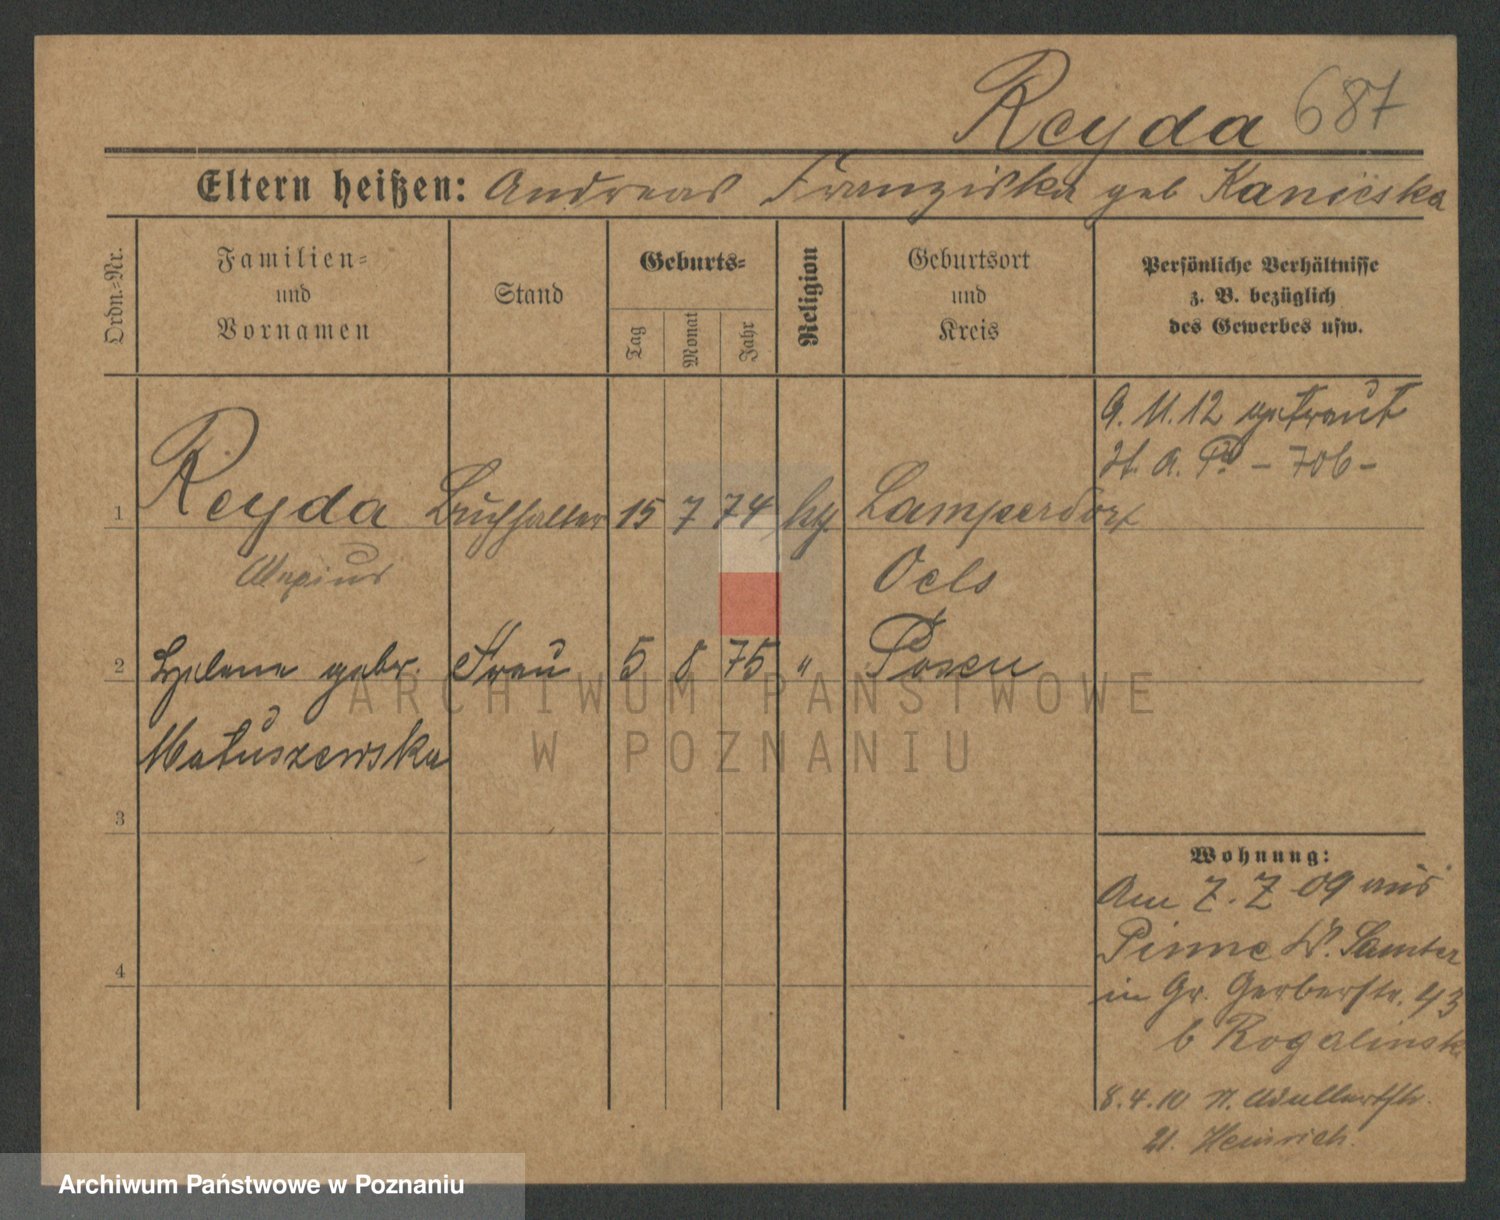 Reyda 687
Eltern heißen: Andreas Franziska geb
Ordn.-Nr.
Familien-
und
Vornamen
Stand
Geburts-
Tag
Monat
Jahr
Religion
Geburtsort
und
Kreis
Persönliche Verhältnisse
z. B. bezüglich
des Gewerbes usw.
9. 11. 12 getraut
St. A. - 706 -
1 Reyda Buchhalter 15 7 74 kty. Lamperdorf
Oels
2 Helene gebr. Frau 5 8 75 " Posen
Matuszewska
3
4
Wohnung:
Am 7. 7 09 aus
Pinne Kr. Samter
in Gr. Gerberstr. 43
b Rogalinski
8.4.10
21. Heinrich.
ARCHIWUM PAŃSTWOWE
W POZNANIU
Archiwum Państwowe w Poznaniu